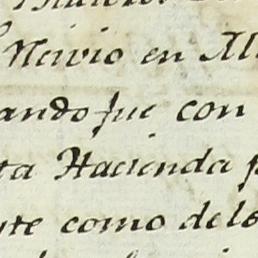 Neivio en Al
ando fue con
ta Hacienda p
te como de lo